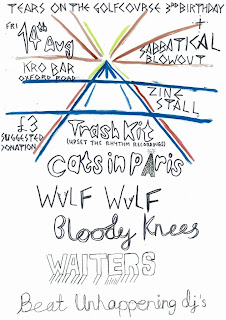 TEARS ON THE GOLFCOURSE 3RD BIRTHDAY
+
FRI 14th Aug
SABBATICAL
BLOWOUT
KRO BAR
OXFORD ROAD
ZINE
STALL
£3
SUGGESTED
DONATION
Trash Kit
(UPSET THE RHYTHM RECORDINGS)
Cats in Paris
WULF WULF
Bloody Knees
WAITERS
Beat Unhappening dj's